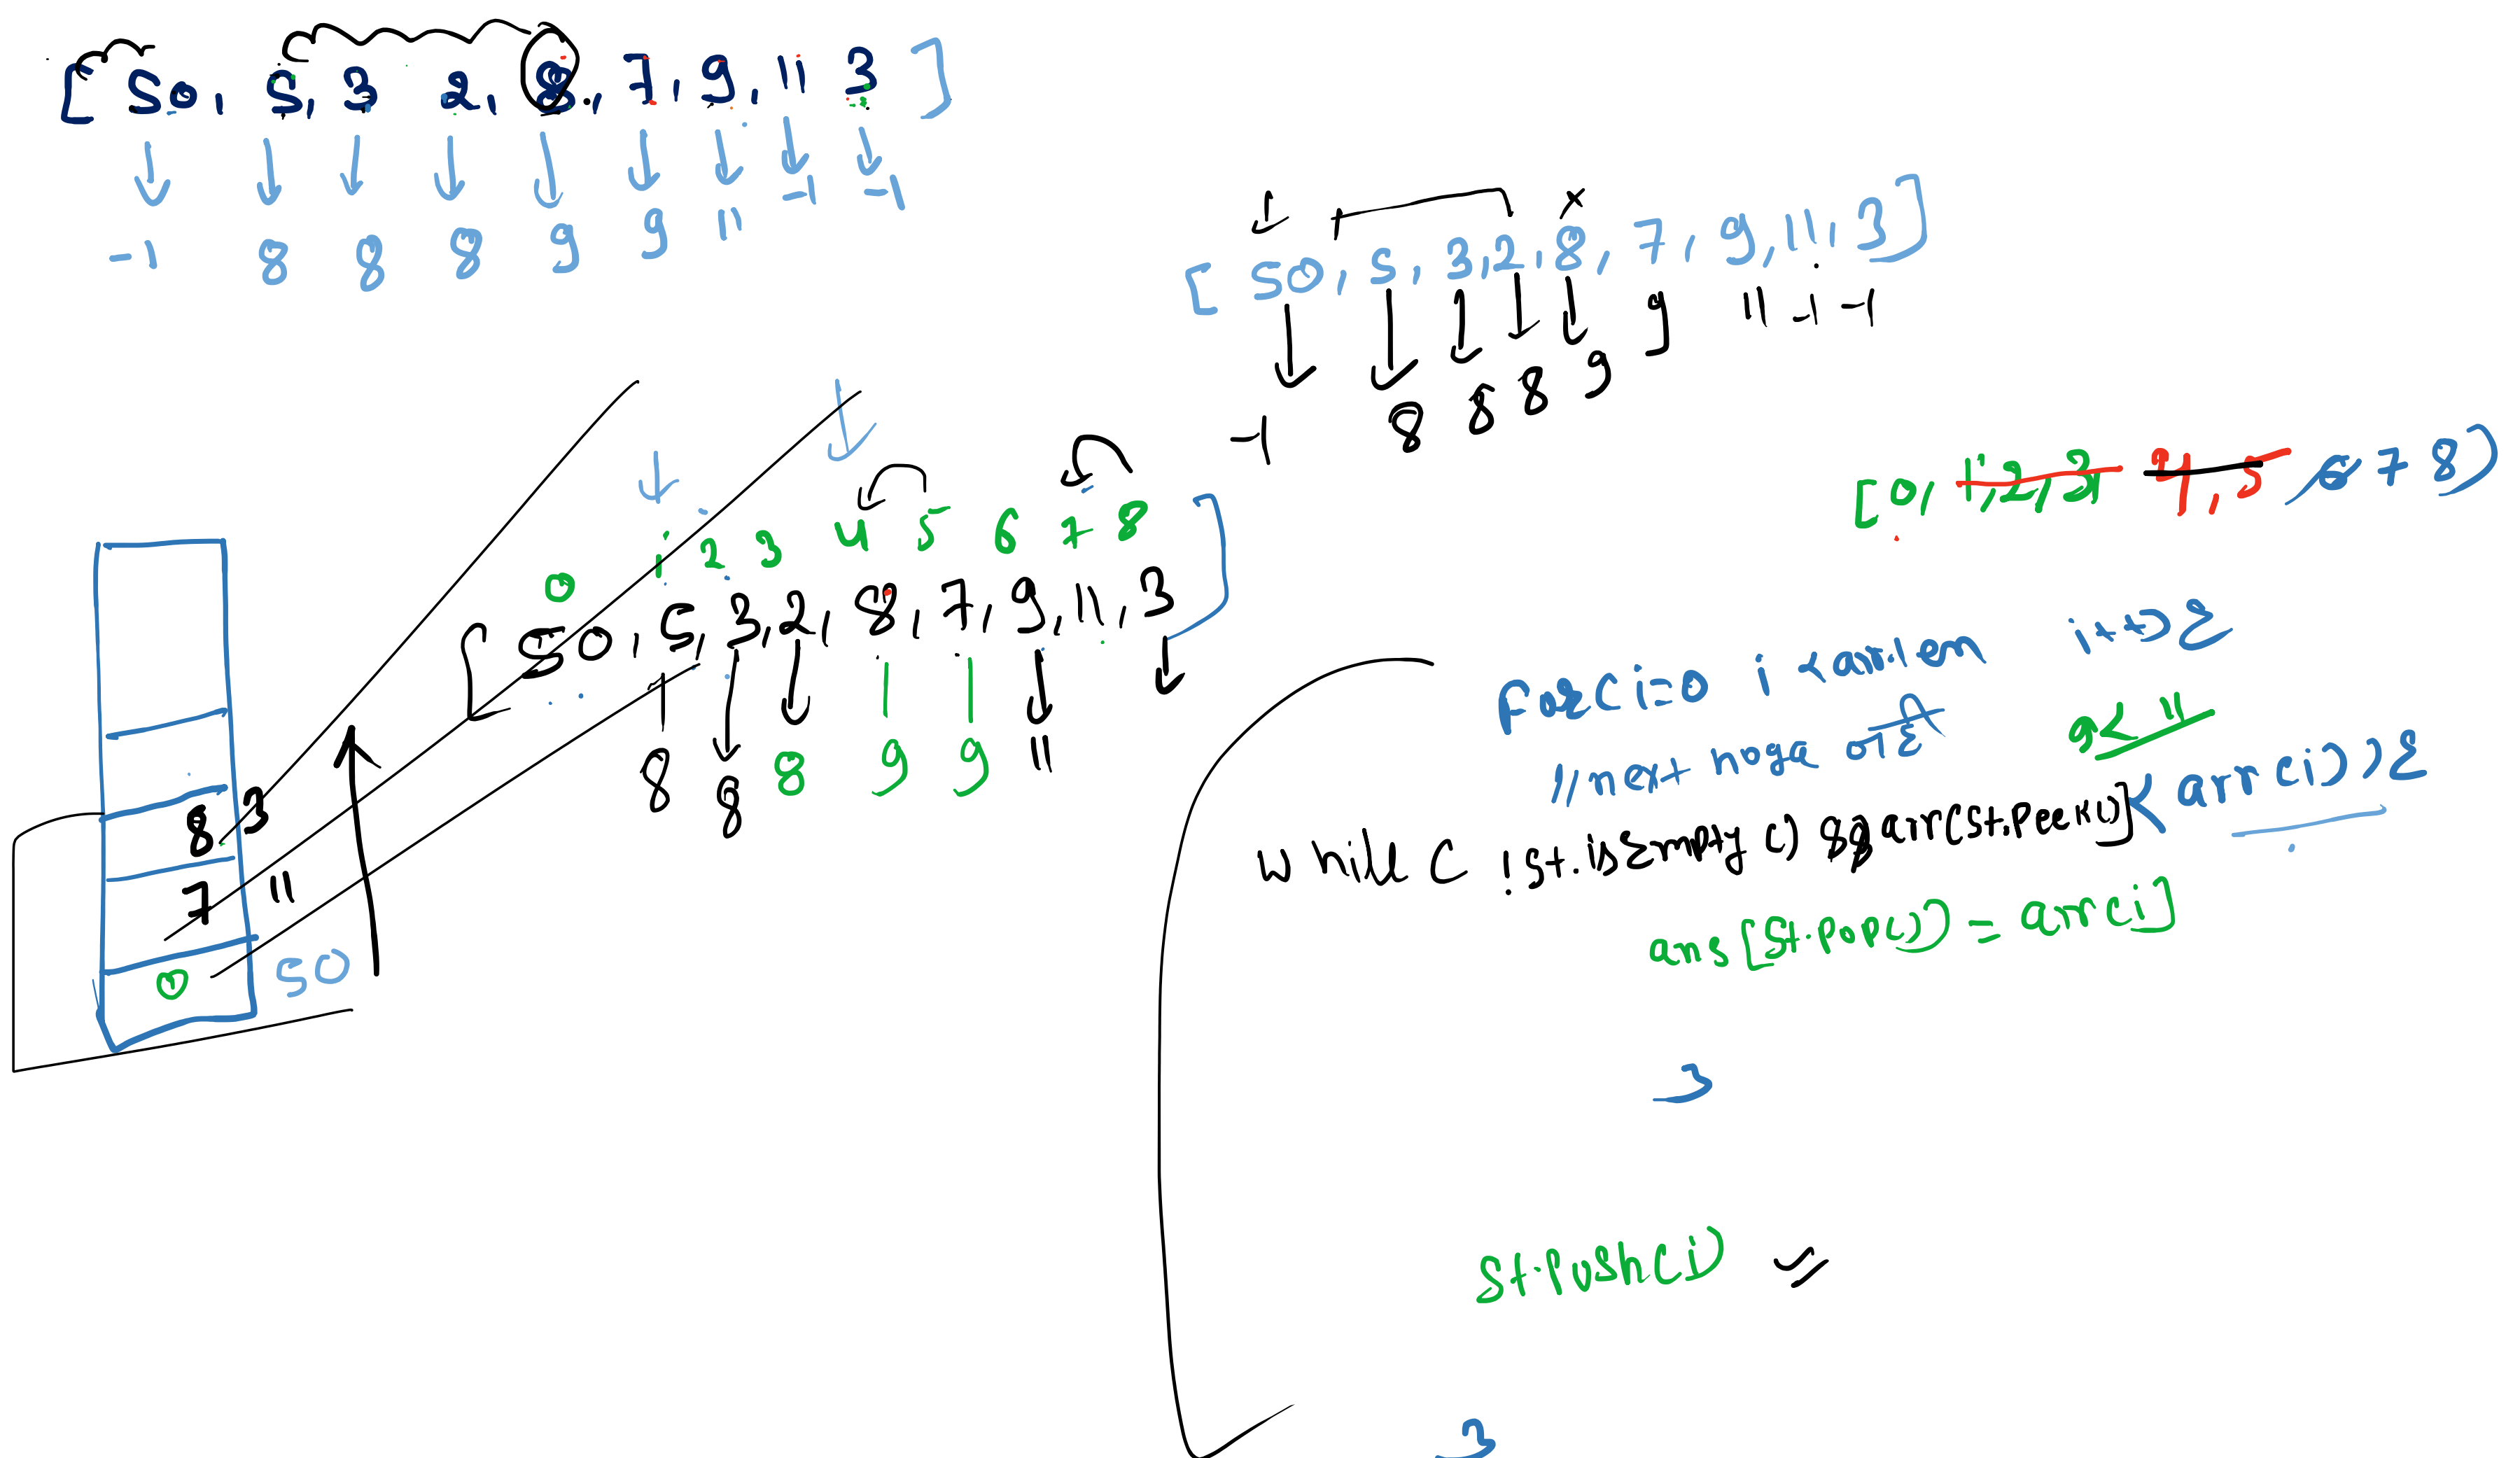 [50, 5, 3 2, 8, 7, 9, 11 3]
-1 8 8 8 9 9 11 -1 -1
[50, 5, 3, 2, 8, 7, 9, 11, 3]
-1 8 8 8 9 9 11 -1 -1
[0, 1, 2, 3, 4, 5 6 7 8]
0 1 2 3 4 5 6 7 8
[50, 5, 3, 2, 8, 7, 9, 11, 3]
8 8 8 9 9 11
8 3
7 11
0 50
for(i=0 i<arr.len i++){
//next hoga
9<11
while(!st.isEmpty() && arr[st.peek()]<arr[i]){
ans[st.pop()] = arr[i]
}
st.push(i)
}